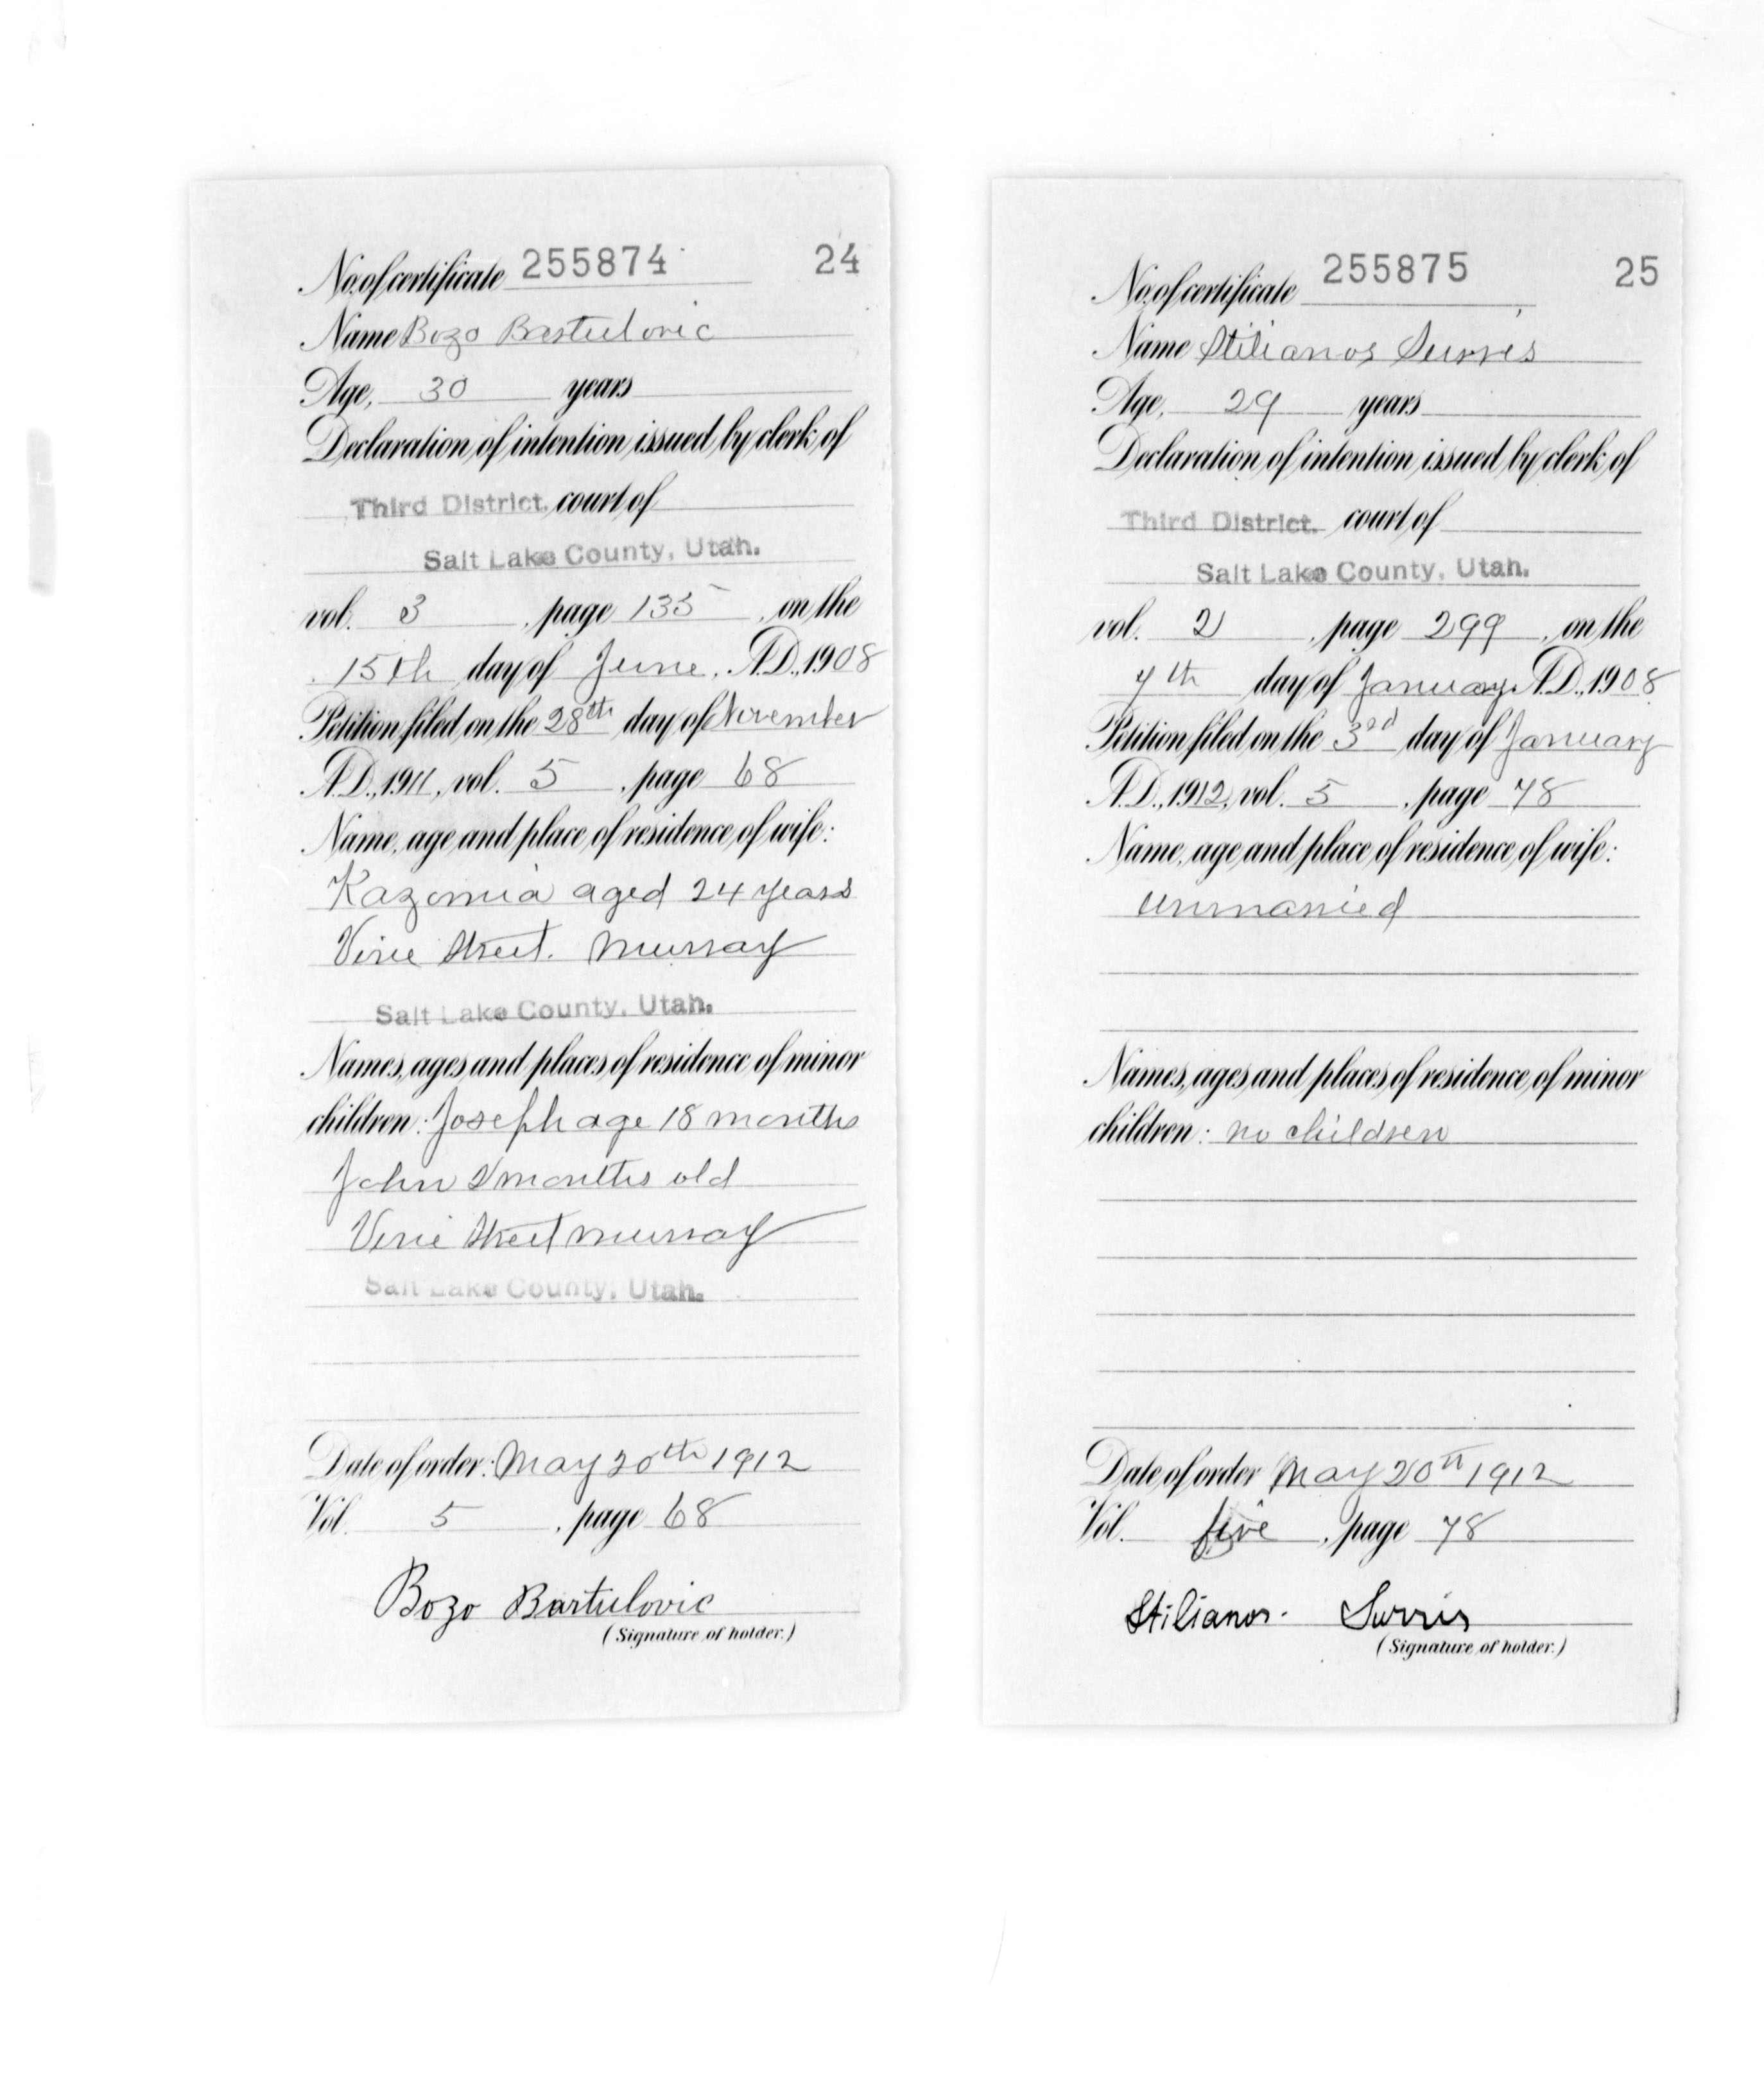 No. of certificate 255874 24
Name Bozo Bartulovic
Age, 30 years
Declaration of intention issued by clerk of
Third District. court of
Salt Lake County, Utah.
vol. 3, page 135, on the
15th day of June, A.D., 1908
Petition filed on the 28th day of November
A.D., 1911, vol. 5, page 68
Name, age and place of residence of wife:
Kazomia aged 24 years
Vine Street. Murray
Salt Lake County, Utah.
Names, ages and places of residence of minor
children: Joseph age 18 months
John 2 months old
Vine Street Murray
Salt Lake County, Utah.
Date of order: May 20th 1912
Vol. 5, page 68
Bozo Bartulovic
(Signature of holder.)
No. of certificate 255875 25
Name Stilianos Surris
Age, 29 years
Declaration of intention issued by clerk of
Third District. court of
Salt Lake County, Utah.
vol. 2, page 299, on the
7th day of January A.D., 1908
Petition filed on the 3rd day of January
A.D., 1912, vol. 5, page 78
Name, age and place of residence of wife:
unmarried
Names, ages and places of residence of minor
children: no children
Date of order May 20th 1912
Vol. five, page 78
Stilianos. Surris
(Signature of holder.)